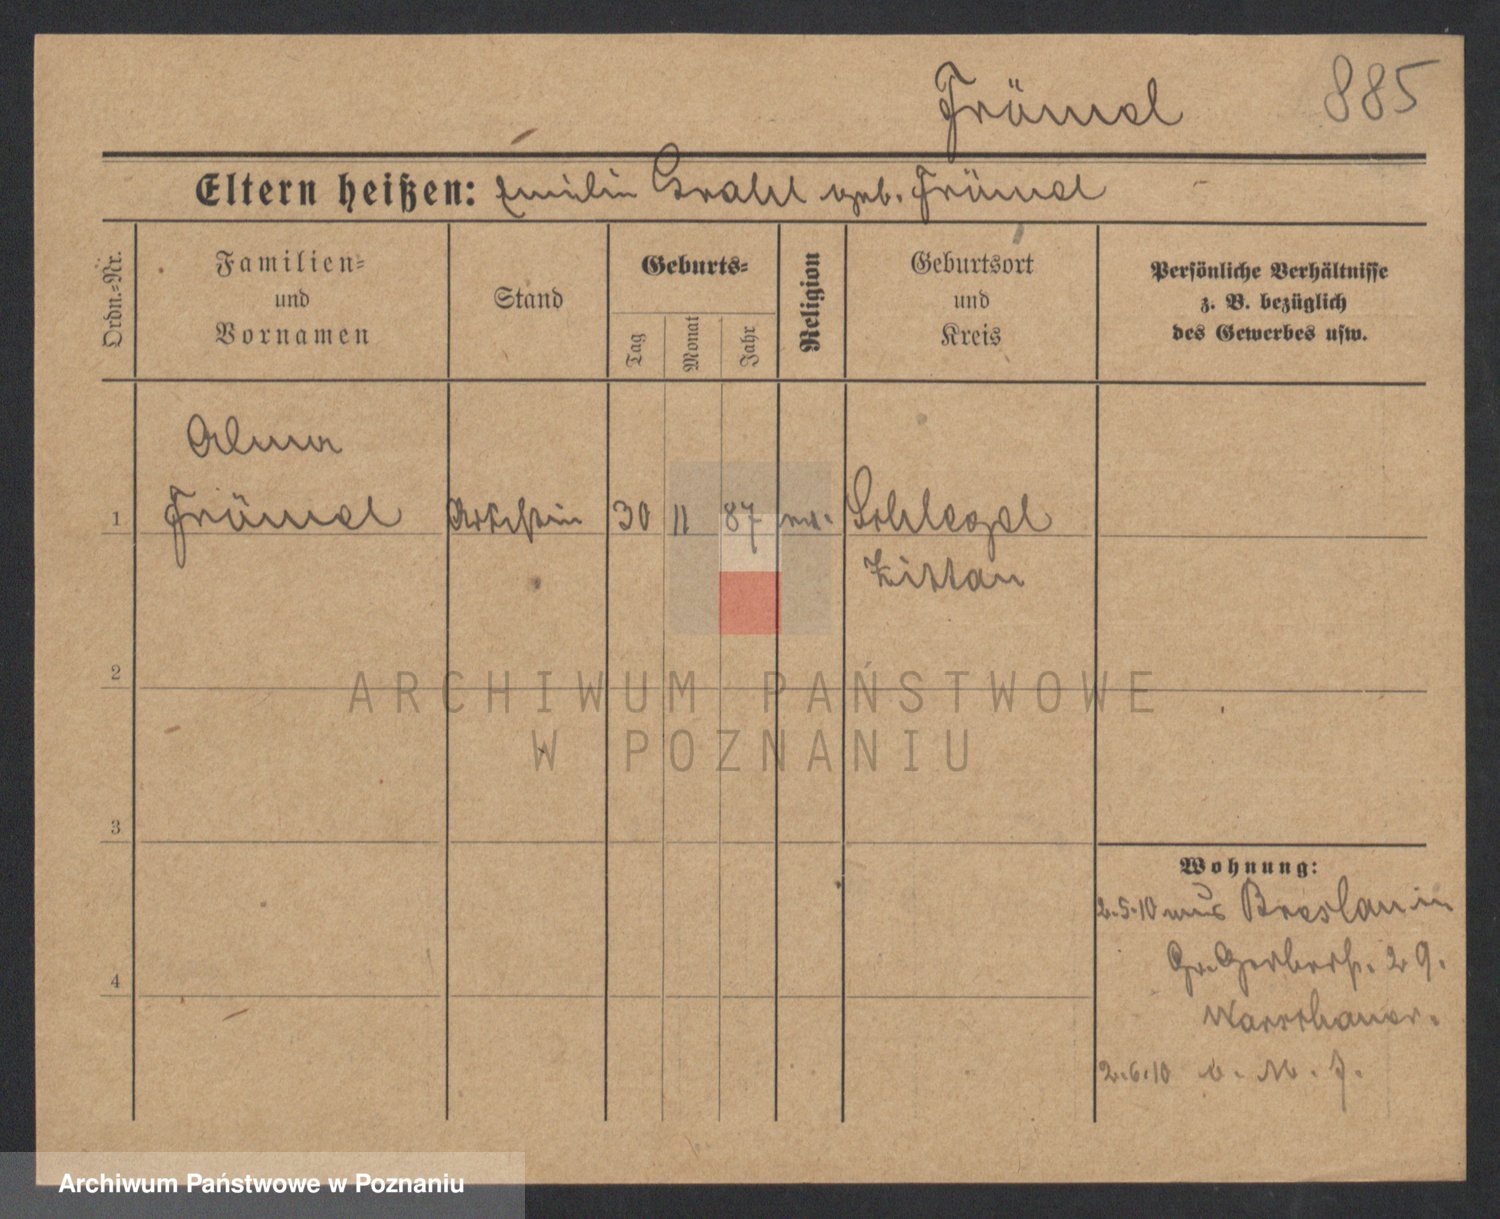 Frömel 885
Eltern heißen: Emilie Grahl geb. Frömel
Ordn.-Nr.
Familien-
und
Vornamen
Stand
Geburts-
Tag
Monat
Jahr
Religion
Geburtsort
und
Kreis
Persönliche Verhältnisse
z. B. bezüglich
des Gewerbes usw.
Alma
1 Frömel Artistin 30 11 87 ev. Schlegel
Zittau
2
3
4
ARCHIWUM PAŃSTWOWE
W POZNANIU
Wohnung:
2.5.10 aus Breslau in
Gr. Gerberst. 29.
Warschauer.
2.6.10
Archiwum Państwowe w Poznaniu